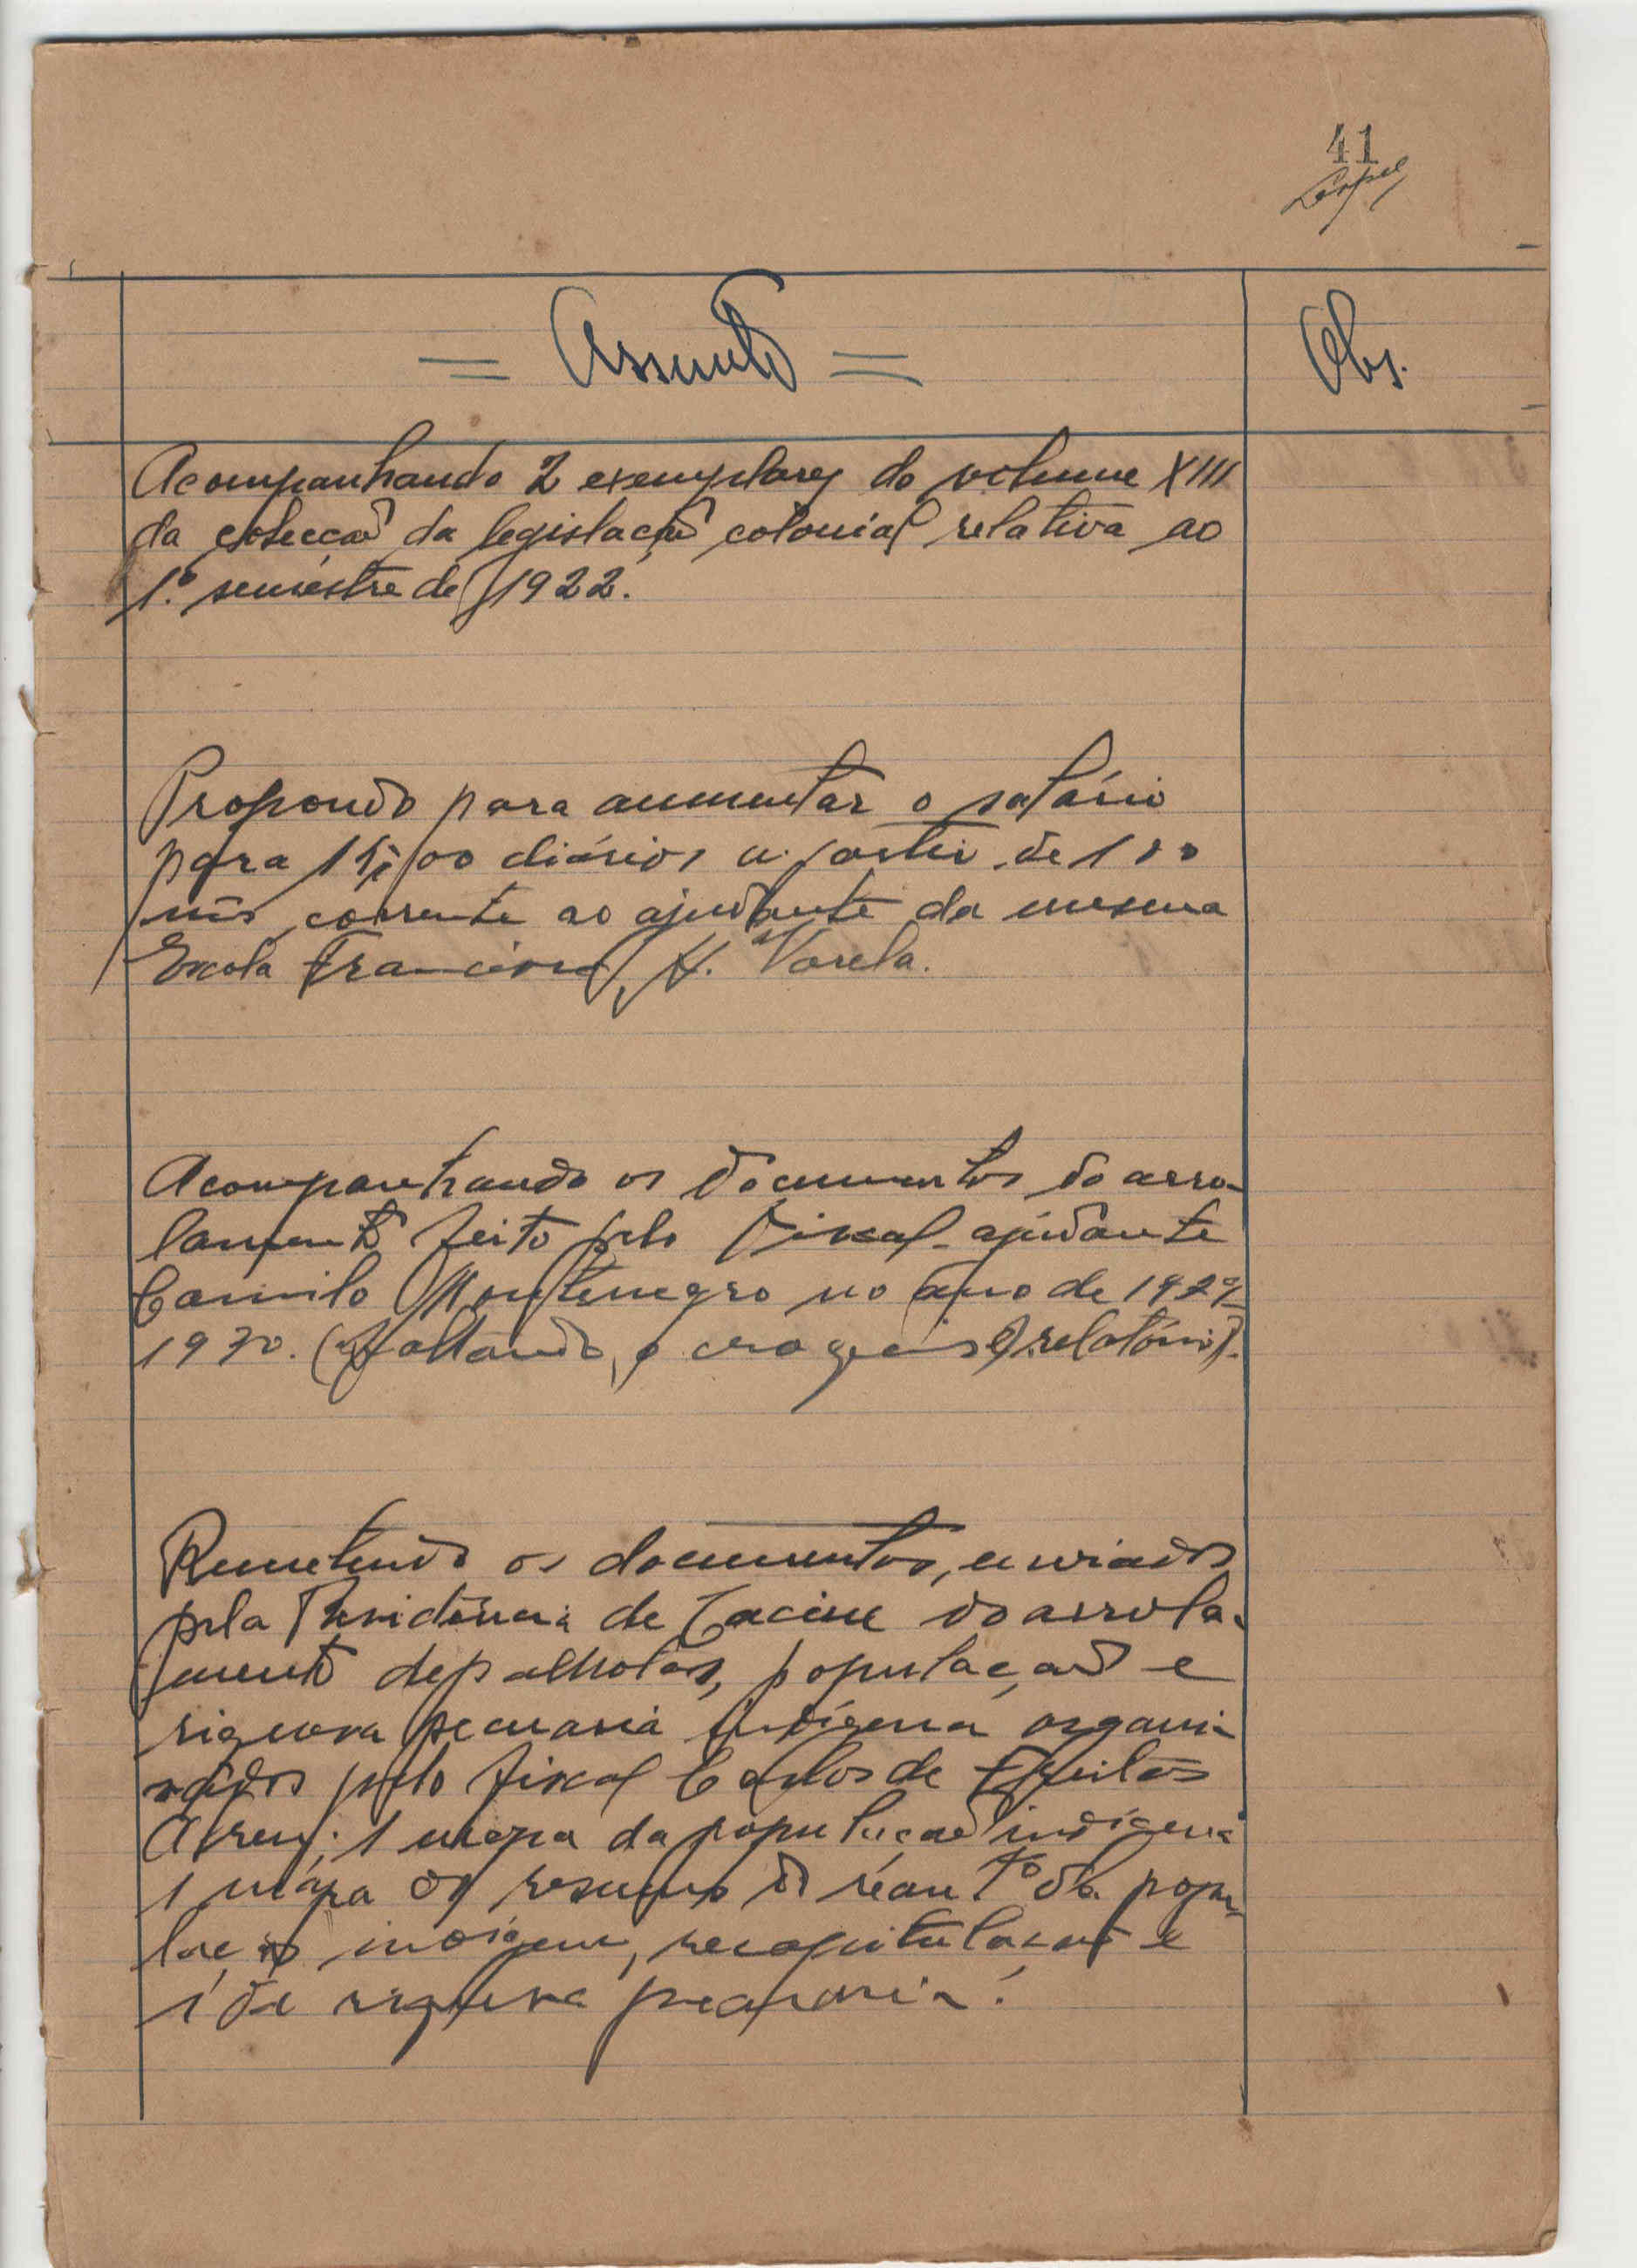 41
= Assunto =
Obs.
Acompanhando 2 exemplares do volume XIII
da colecção da legislação colonial relativa ao
1.º semestre de 1922.
Propondo para aumentar o salário
para diários a partir de 1 do
mês corrente ao ajudante da mesma
Escola Francisco H. Varela.
Acompanhando os documentos do arro-
lamento feito pelo Fiscal-ajudante
Camilo Montenegro no ano de 1929-
1930. (Faltando o relatório).
Remetendo os documentos, enviados
pela Residência de Cacine do arrola-
mento de palhotas, população e
riqueza pecuaria indígena organi-
zados pelo fiscal Carlos de Freitas
Abreu; 1 mapa da população indígena
1 mápa do resumo do da popu-
lação indígena, recapitulação e
1 da riqueza pecuaria.